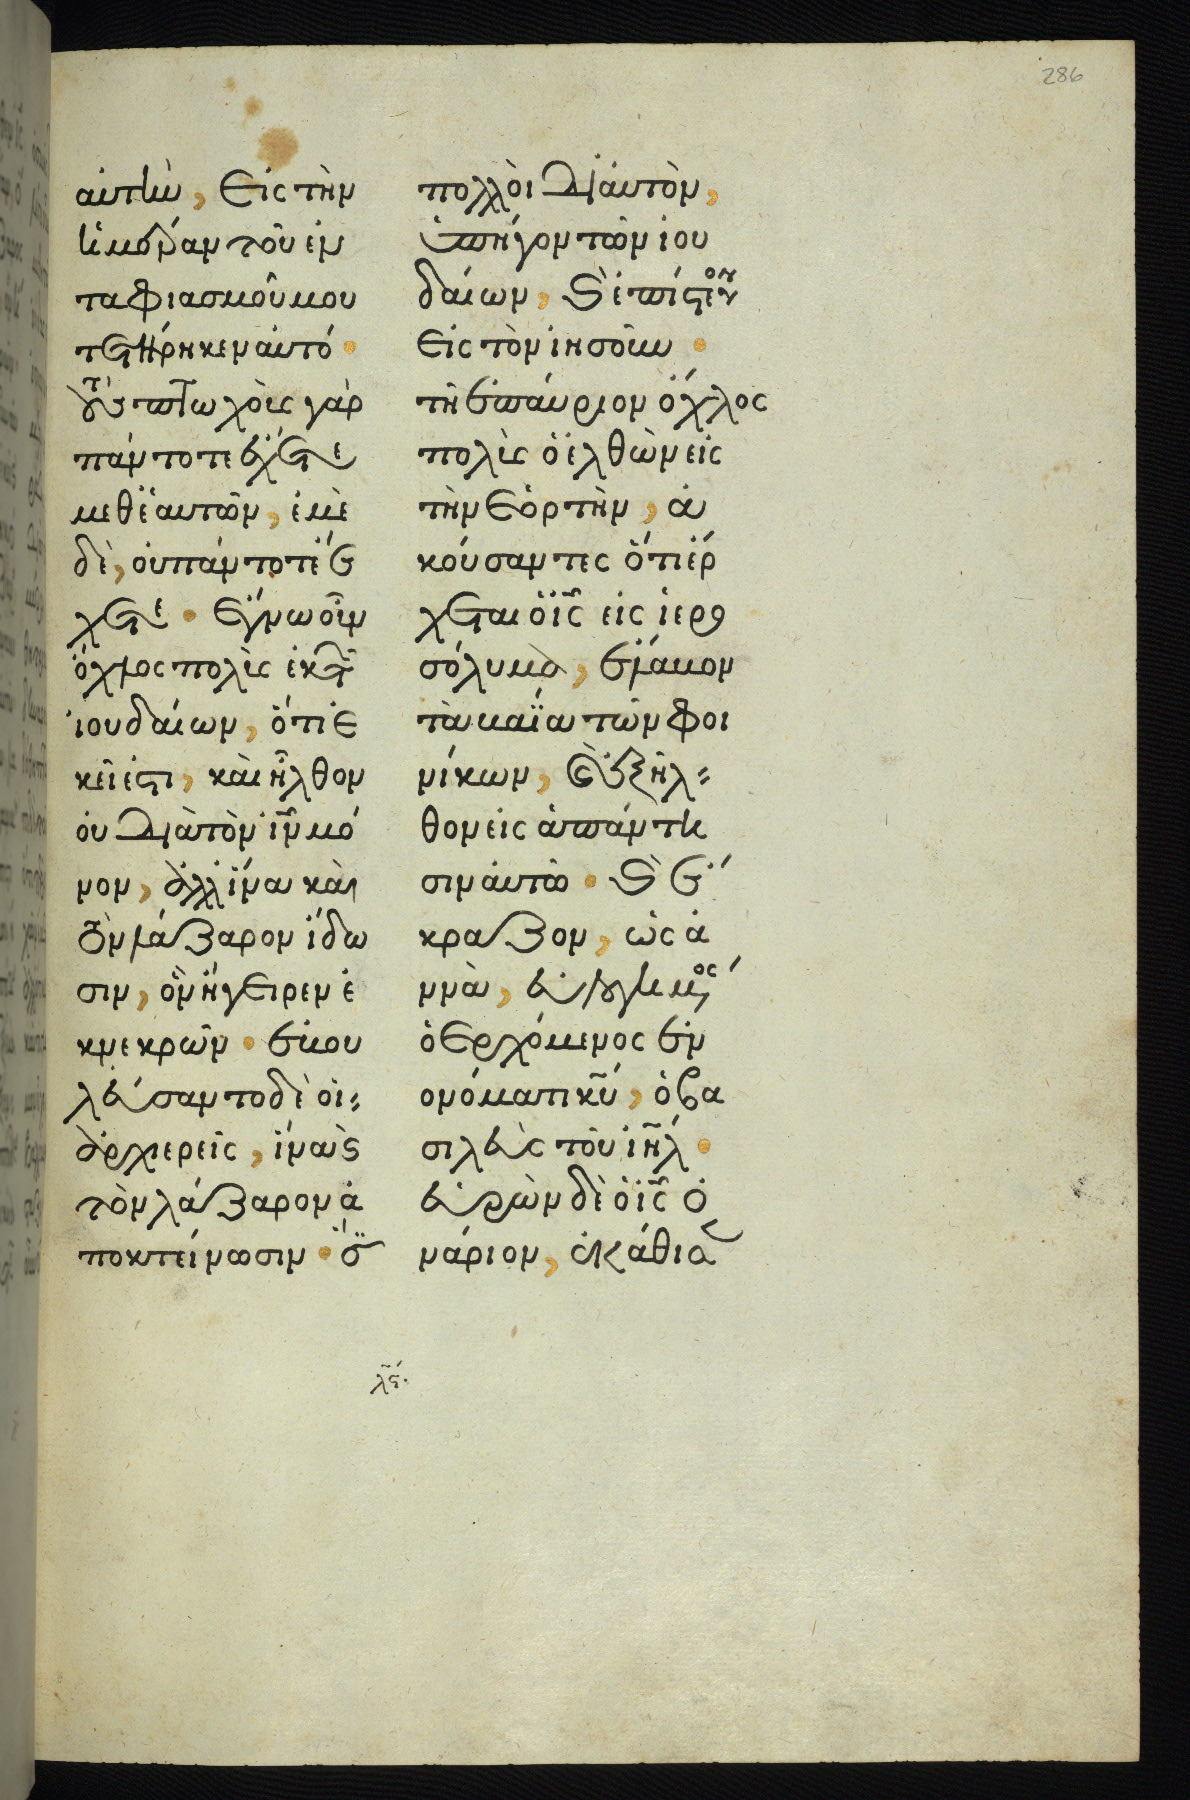 286
αὐτὴν, εἰς τὴν
ἡμέραν τοῦ ἐν
ταφιασμοῦ μου
τετήρηκεν αὐτό·
τοὺς πτωχοὺς γὰρ
πάντοτε ἔχετε
μεθ' ἑαυτῶν, ἐμὲ
δὲ, οὐ πάντοτε ἔ
χετε· ἔγνω οὖν
ὄχλος πολὺς ἐκ τῶν
ἰουδαίων, ὅτι ἐ
κεῖ ἐστι, καὶ ἦλθον
οὐ διὰ τὸν ἰν μό
νον, ἀλλ' ἵνα καὶ
τὸν λάζαρον ἴδω
σιν, ὃν ἤγειρεν ἐ
κ νεκρῶν· ἐβου
λεύσαντο δὲ οἱ
ἀρχιερεῖς, ἵνα καὶ
τὸν λάζαρον ἀ
ποκτείνωσιν· ὅτι
πολλοὶ δι' αὐτὸν,
ὑπῆγον τῶν ἰου
δαίων, καὶ ἐπίστευον
εἰς τὸν ἰησοῦν·
τῇ ἐπαύριον ὄχλος
πολὺς ὁ ἐλθὼν εἰς
τὴν ἑορτὴν, ἀ
κούσαντες ὅτι ἔρ
χεται ὁ ἰς εἰς ἱερο
σόλυμα, ἔλαβον
τὰ βαΐα τῶν φοι
νίκων, καὶ ἐξῆλ
θον εἰς ἀπάντη
σιν αὐτῶ· καὶ ἔ
κραζον, ὡσα
ννὰ, εὐλογημένος
ὁ ἐρχόμενος ἐν
ὀνόματι κυ, ὁ βα
σιλεὺς τοῦ ἰηλ·
εὑρὼν δὲ ὁ ἰς ὀ
νάριον, ἐκάθισ
λς.